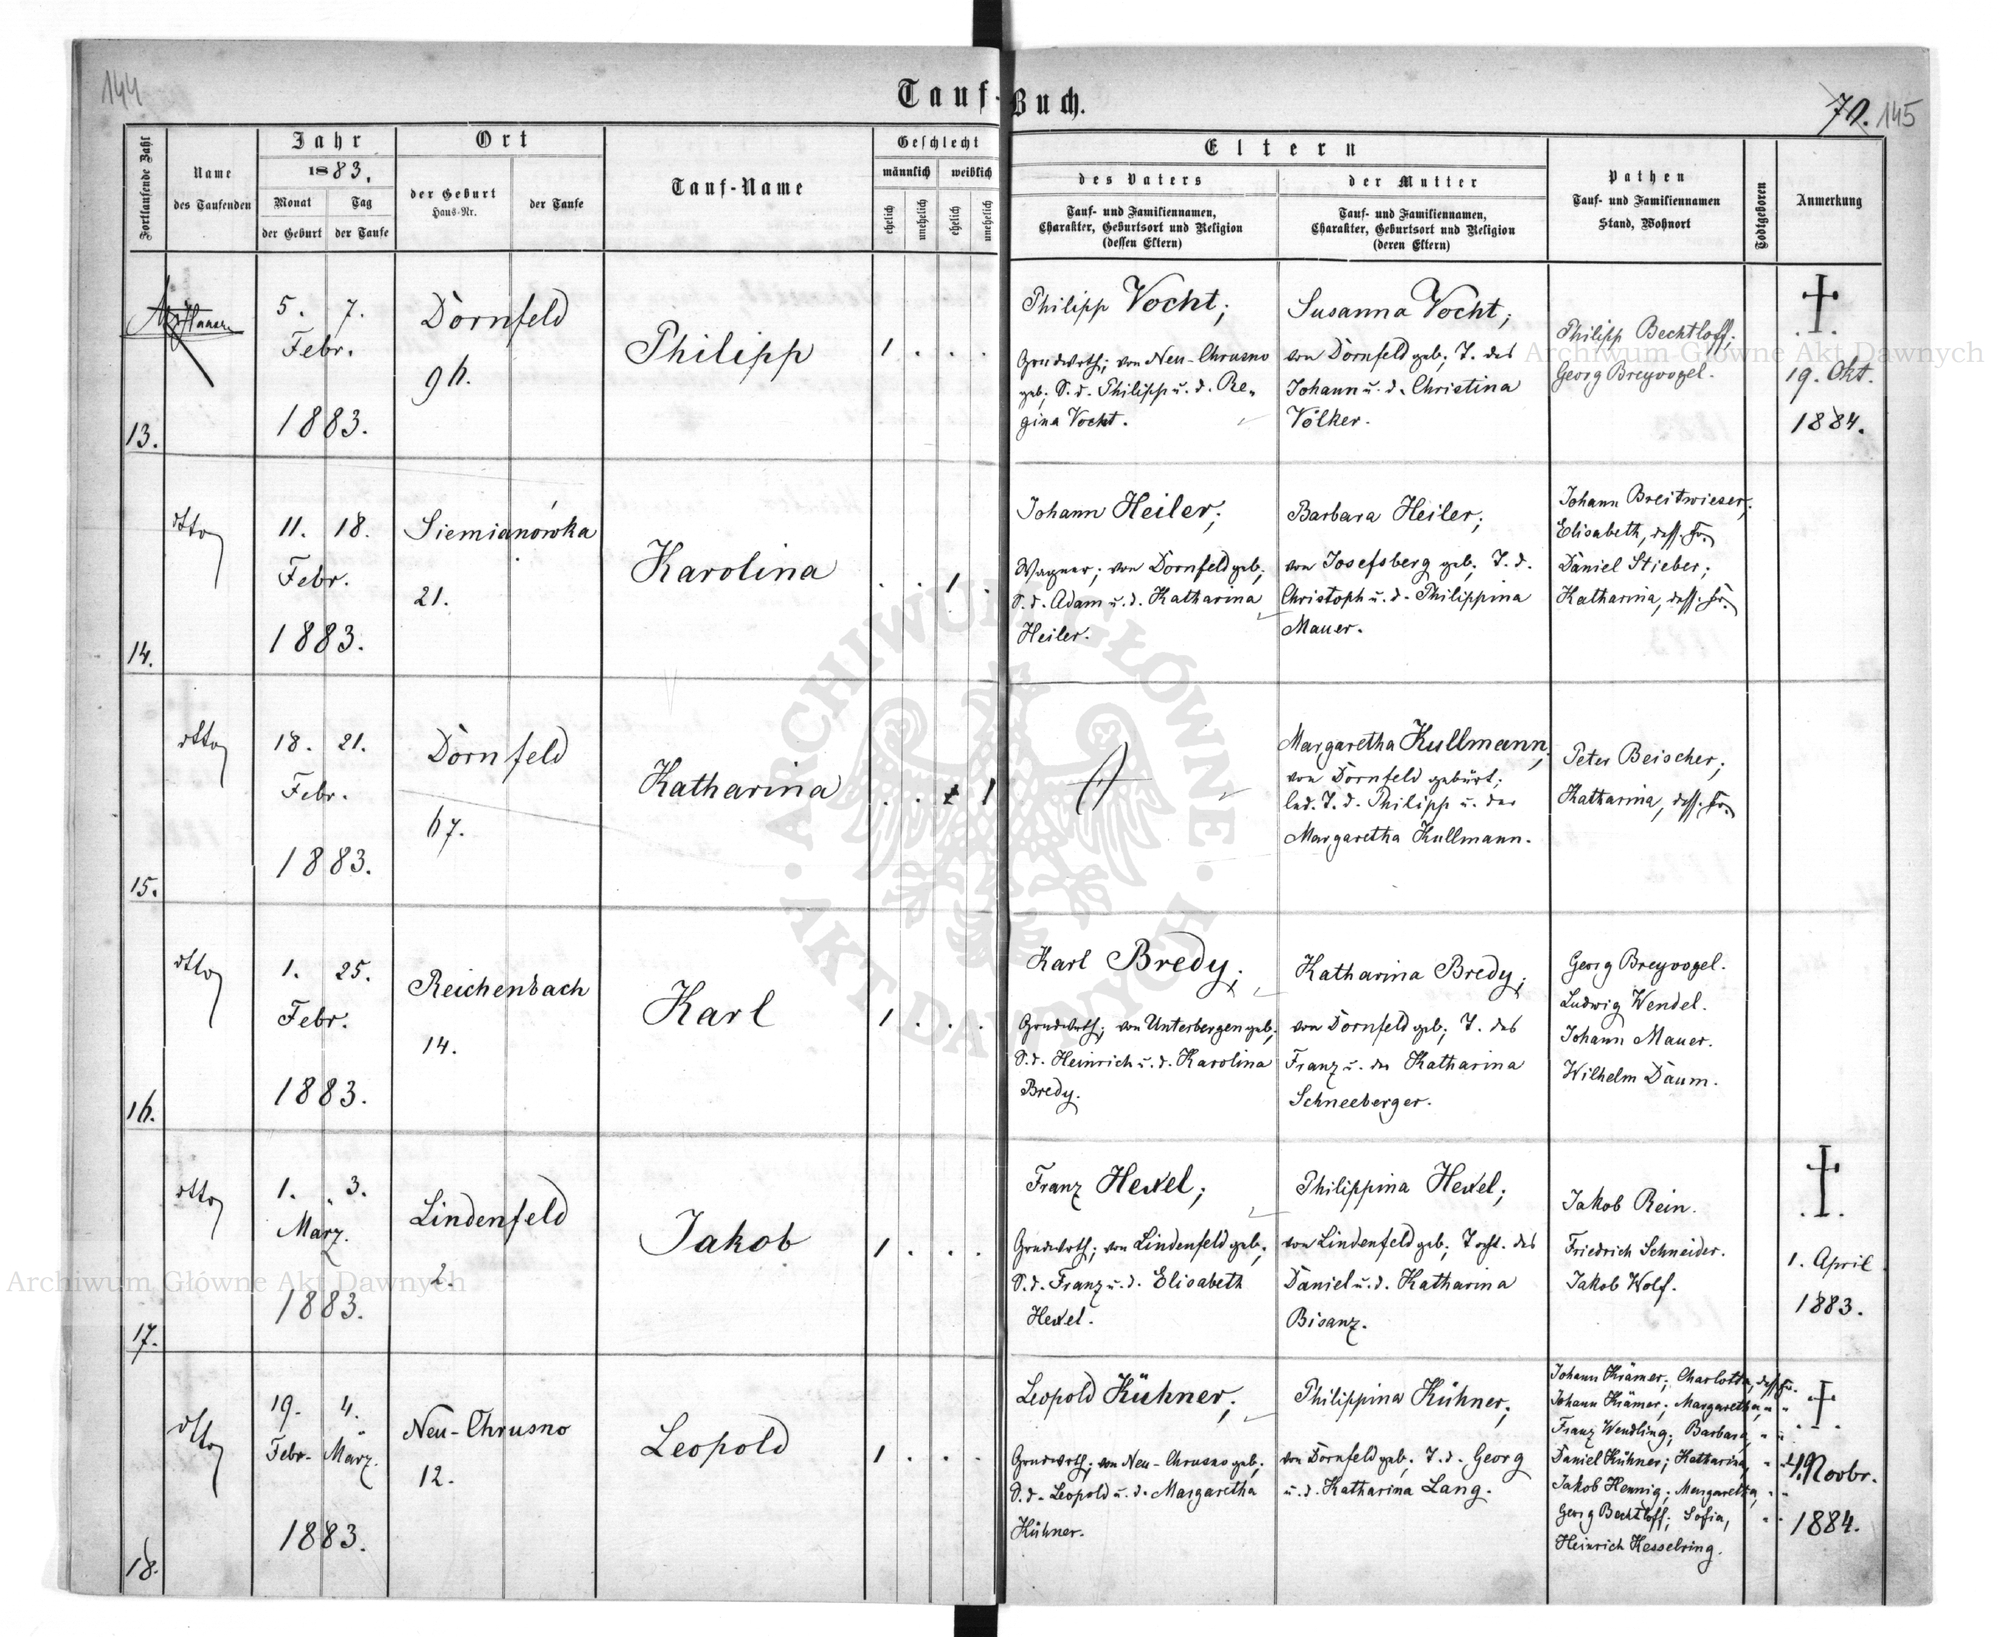 144
Tauf-Buch.
70. 145
Fortlaufende Zahl
Name
des Taufenden
Jahr
1883.
Monat
Tag
der Geburt
der Taufe
Ort
der Geburt
Haus-Nr.
der Taufe
Tauf-Name
Geschlecht
männlich
weiblich
ehelich
unehelich
ehelich
unehelich
Eltern
des Vaters
der Mutter
Tauf- und Familiennamen,
Charakter, Geburtsort und Religion
(dessen Eltern)
Tauf- und Familiennamen,
Charakter, Geburtsort und Religion
(deren Eltern)
Pathen
Tauf- und Familiennamen
Stand, Wohnort
Todtgeboren
Anmerkung
13.
5. 7.
Febr.
1883.
Dornfeld
96.
Philipp
1 . . .
Philipp Vocht;
Grndwrth; von Neu-Chrusno
geb; S. d. Philipp u. d. Re-
gina Vocht.
Susanna Vocht;
von Dornfeld geb; T. des
Johann u. d. Christina
Völker.
Philipp Bechtloff;
Georg Breyvogel.
19. Okt.
1884.
14.
dtto
11. 18.
Febr.
1883.
Siemianówka
21.
Karolina
. . 1 .
Johann Heiler;
Wagner; von Dornfeld geb;
S. d. Adam u. d. Katharina
Heiler.
Barbara Heiler;
von Josefsberg geb; T. d.
Christoph u. d. Philippina
Mauer.
Johann Breitwieser;
Elisabeth, dess. Fr.
Daniel Stieber;
Katharina, dess. Fr.
15.
dtto
18. 21.
Febr.
1883.
Dornfeld
67.
Katharina
. . 1 1
Margaretha Kullmann;
von Dornfeld gebürt;
led. T. d. Philipp u. der
Margaretha Kullmann.
Peter Beischer;
Katharina, dess. Fr.
16.
dtto
1. 25.
Febr.
1883.
Reichenbach
14.
Karl
1 . . .
Karl Bredy;
Grndwrth; von Unterbergen geb;
S. d. Heinrich u. d. Karolina
Bredy.
Katharina Bredy;
von Dornfeld geb; T. des
Franz u. der Katharina
Schneeberger.
Georg Breyvogel.
Ludwig Wendel.
Johann Mauer.
Wilhelm Daum.
17.
dtto
1. 3.
März.
1883.
Lindenfeld
2.
Jakob
1 . . .
Franz Hexel;
Grndwrth; von Lindenfeld geb;
S. d. Franz u. d. Elisabeth
Hexel.
Philippina Hexel;
von Lindenfeld geb; Tocht. des
Daniel u. d. Katharina
Bisanz.
Jakob Rein.
Friedrich Schneider.
Jakob Wolf.
1. April
1883.
18.
dtto
19. 4.
Febr. März.
1883.
Neu-Chrusno
12.
Leopold
1 . . .
Leopold Kühner;
Grndwrth; von Neu-Chrusno geb;
S. d. Leopold u. d. Margaretha
Kühner.
Philippina Kühner;
von Dornfeld geb; T. d. Georg
u. d. Katharina Lang.
Johann Krämer; Charlotta, dess. Fr.
Johann Krämer; Margaretha, " "
Franz Wendling; Barbara, " "
Daniel Kühner; Katharina, " "
Jakob Hennig; Margaretha, " "
Georg Bechtloff; Sofia, " "
Heinrich Hesselring.
4. Novbr.
1884.
Archiwum Główne Akt Dawnych
Archiwum Główne Akt Dawnych
ARCHIWUM GŁÓWNE AKT DAWNYCH